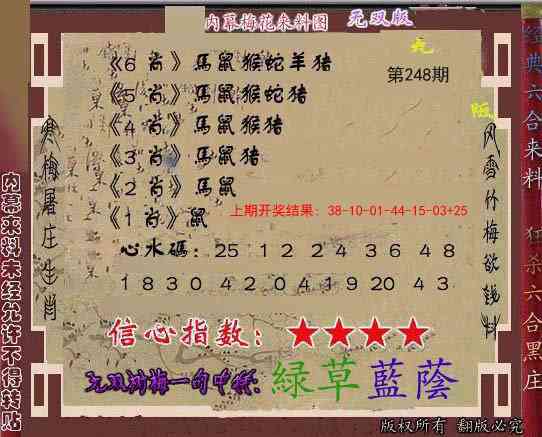 内幕梅花来料图 无双版
《6 肖》馬鼠猴蛇羊猪
第248期
《5 肖》馬鼠猴蛇猪
《4 肖》馬鼠猴猪
《3 肖》馬鼠猪
《2 肖》馬鼠
《1 肖》鼠
上期开奖结果：38-10-01-44-15-03+25
心水碼：25 12 24 36 48
18 30 42 04 19 20 43
信心指数：★★★★
无双鸿梅一句中特：緑草藍蔭
版权所有 翻版必究
寒梅屠庄生肖
风雪竹梅欲钱料
内幕来料未经允许不得转贴
经典六合来料
狂杀六合黑庄